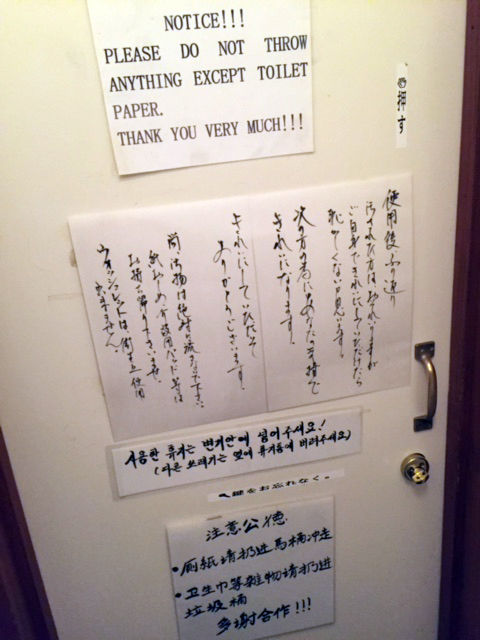 NOTICE!!!
PLEASE DO NOT THROW
ANYTHING EXCEPT TOILET
PAPER.
THANK YOU VERY MUCH!!!
押す
使用後ふり返り
汚された方は、おそれいりますが
ご自身できれいにしていただけたら
恥かしくないと思います。
次の方の為にもあなたの手で
きれいになります。
きれいにしていただいて
ありがとうございます。
尚、汚物は絶対に流さないで下さい。
お持ち帰り下さいませ。
ウォッシュレットは、衛生上使用
出来ません。
사용한 휴지는 변기안에 넣어주세요!
(다른 쓰레기는 옆에 휴지통에 버려주세요)
鍵をお忘れなく。
注意公德
•厕纸请扔进馬桶冲走
•卫生巾等雜物请扔进
垃圾桶
多谢合作!!!